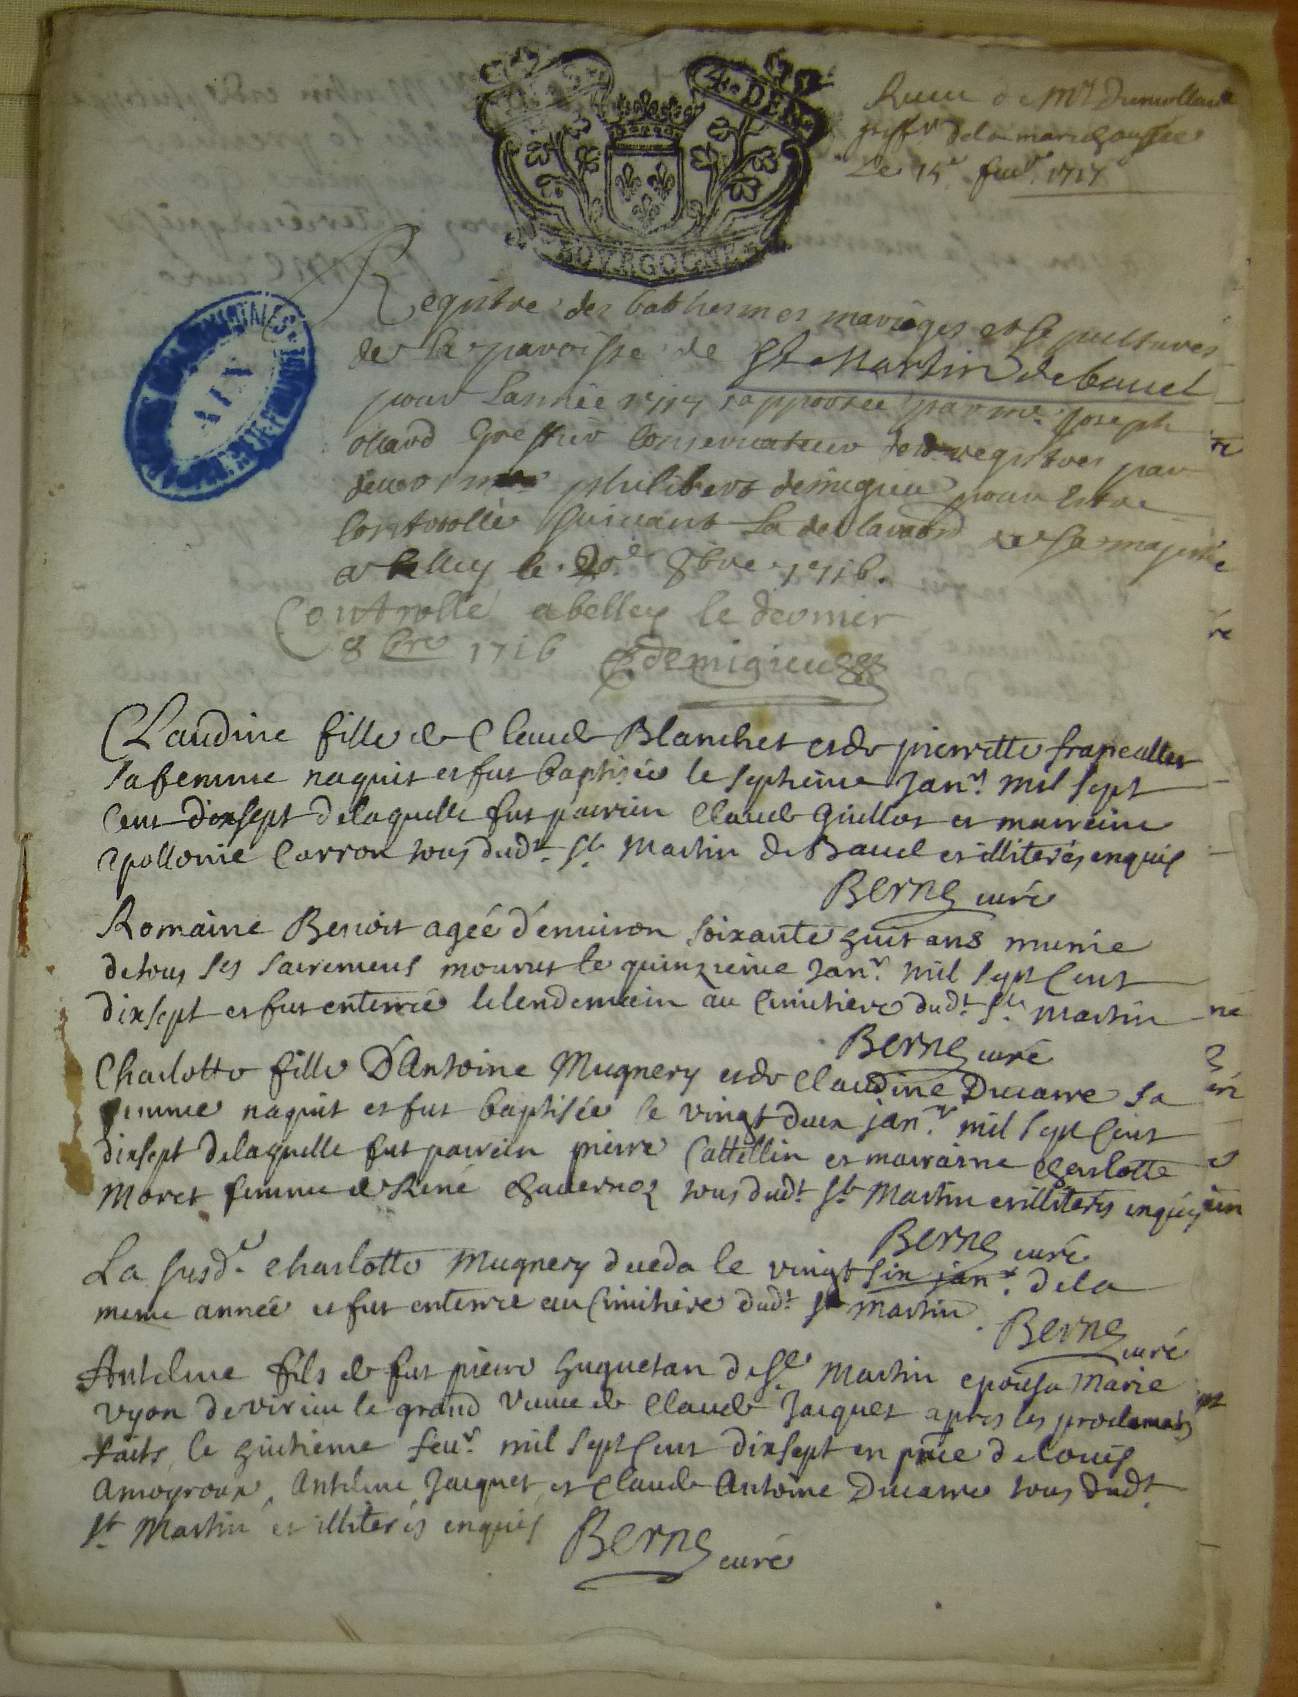 4. DEN.
BOVRGOGNE
de Mr
greffr de la marechaussée
Le 15e feur 1717
AIN
Registre des bathesmes mariages et sepultures
de la paroisse de St Martin de bauel
pour Lannée 1717 rapportée par me Joseph
greffier Conservateur desd registres par
deuant philibert demigieu pour Estre
Controllé suivant La declaraon de sa majesté
a belley le 20e 8bre 1716.
Controllé a belley le dernier
8bre 1716 demigieu
Claudine fille de Claude Blanchet et de pierrette francallet
sa femme naquit et fut baptisée le septieme Janr mil sept
cent dixsept de laquelle fut parrein Claude Guillot et marreine
apollonie Carron tous dudt St Martin de Bauel et illiterés enquis
Berne curé
Romaine Benoit ageé d'enuiron soixante huit ans munie
de tous ses sacremens mourut le quinzieme Janr mil sept cent
dixsept et fut enterrée le lendemain au Cimitiere dudt St Martin
Berne curé
Charlotte fille D'Antoine Mugnery et de Claudine Ducarre sa
femme naquit et fut baptisée le vingt deux janr mil sept cent
dixsept de laquelle fut parrein pierre Cattellin et marraine Charlotte
Moret femme de René Chauernoz tous dudt St Martin et illiterés enquis
Berne curé
La susde Charlotte Mugnery deceda le vingt six janr de la
meme année et fut enterrée au Cimitiere dudt St Martin.
Berne curé
Antelme fils de fut pierre huguetan de St Martin epousa Marie
Vyon de virieu le grand veuue de Claude Jacquet apres les proclamaons
faits le huitieme feur mil sept cent dixsept en pnce de Louis
Amoyroux, Antelme Jacquet et Claude Antoine Ducarre tous dudt
St Martin et illiterés enquis
Berne curé